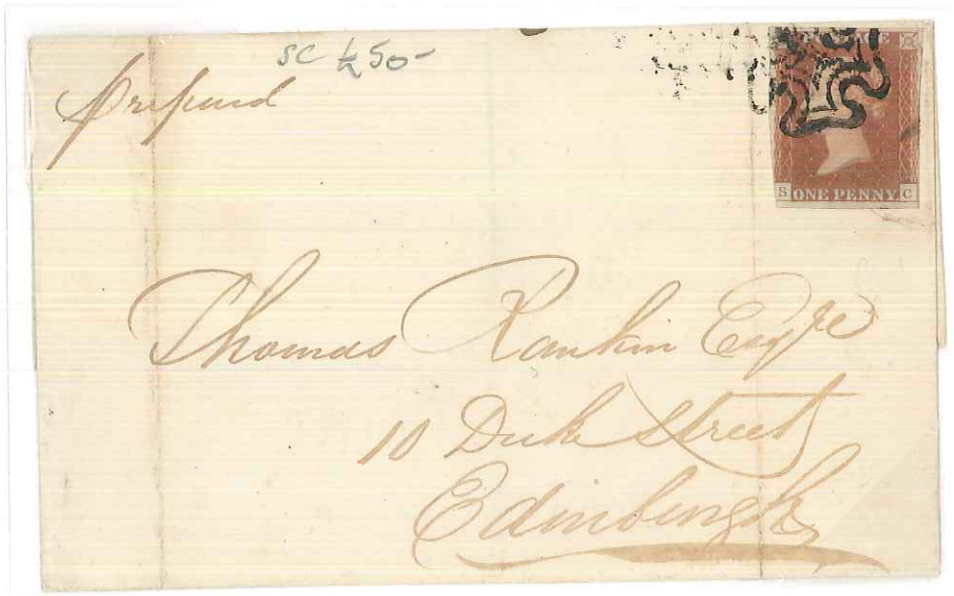 SC £50-
Prepaid
POSTAGE
S ONE PENNY C
Thomas Rankin Esqre
10 Duke Street
Edinburgh